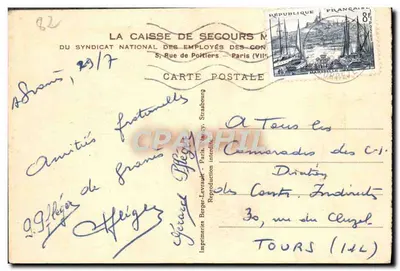 82
LA CAISSE DE SECOURS M
DU SYNDICAT NATIONAL DES EMPLOYÉS DES CON
5, Rue de Poitiers - Paris (VII
CARTE POSTALE
RÉPUBLIQUE FRANÇAISE
8F
29/7
Amitiés fraternelles
de
Gérard Pfléger
Imprimeries Berger-Levrault - Paris, Nancy, Strasbourg
Reproduction interdite
CPARAMA
A Tous les
Camarades des C.I.
des Contr. Indirectes
30, rue du Cluzel
TOURS (I&L)